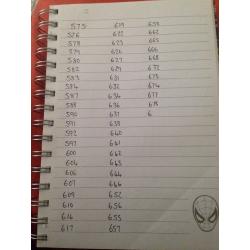 575 619 659
576 622 662
578 623 665
579 626 666
580 627 668
582 629 672
583 631 673
584 632 674
587 634 677
588 636 678
590 637 6
591 638
592 640
597 641
600 642
604 643
606 644
607 646
609 652
610 654
616 655
617 657